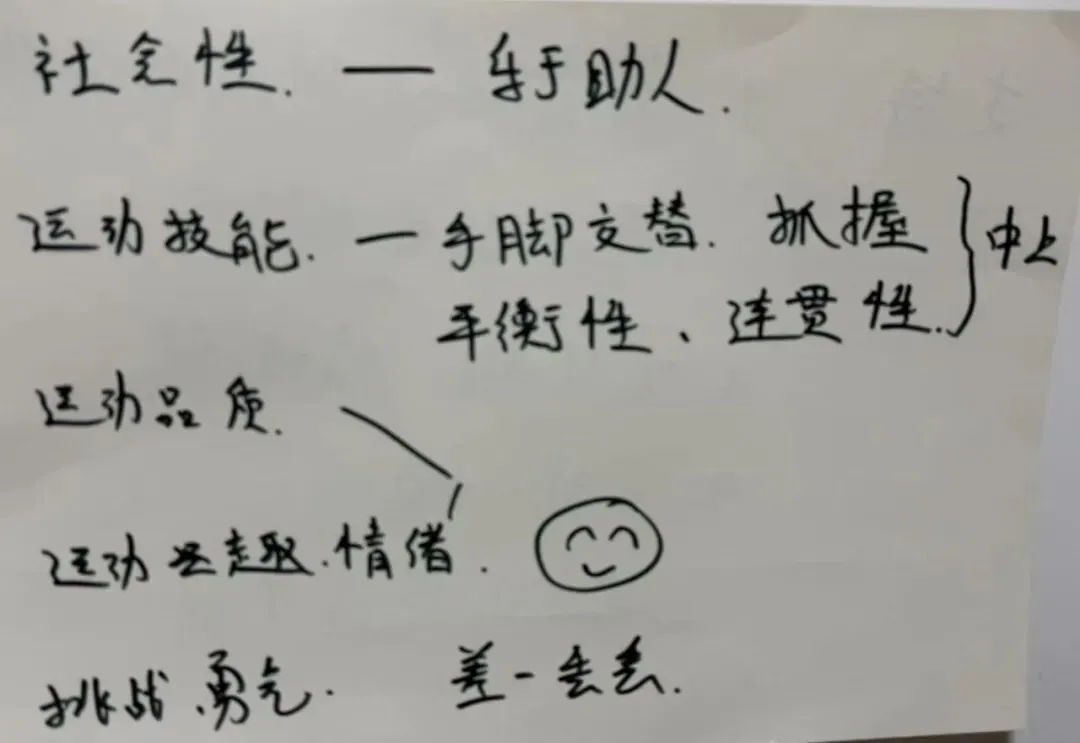 社会性. — 乐于助人.
运动技能. — 手脚交替. 抓握 } 中上
平衡性、连贯性..
运动品质.
运动兴趣.情绪.
挑战、勇气. 差一丢丢.